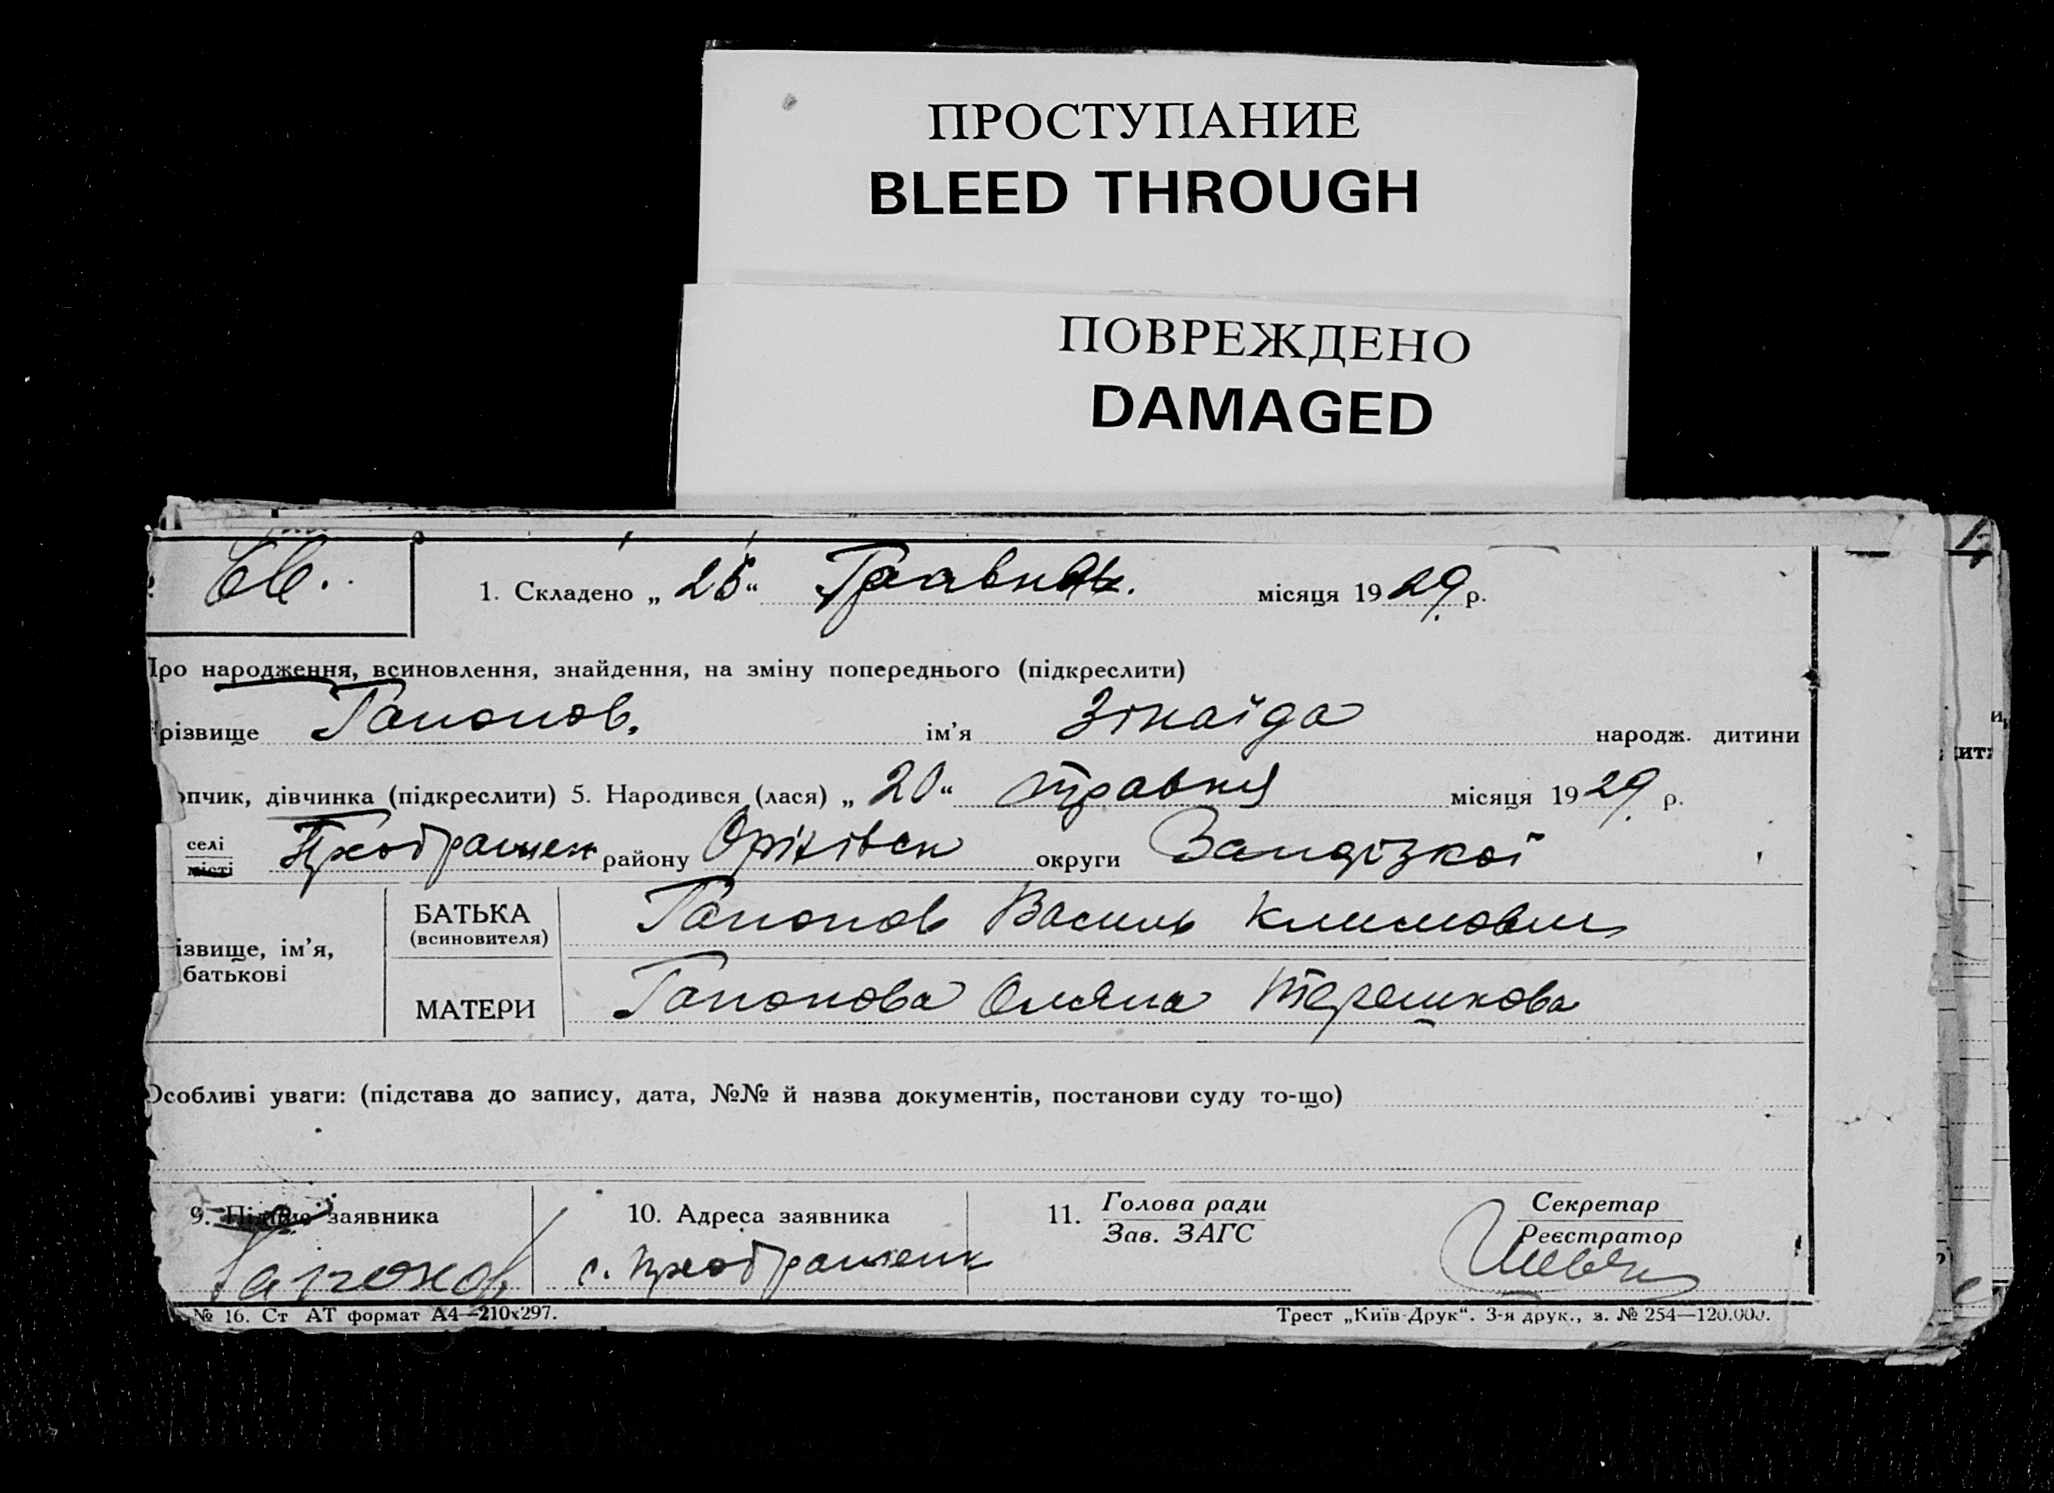 ПРОСТУПАНИЕ
BLEED THROUGH
ПОВРЕЖДЕНО
DAMAGED
1. Складено „ 25 “ Травня. місяця 1929 р.
Про народження, всиновлення, знайдення, на зміну попереднього (підкреслити)
різвище Гапонов. ім’я Зінаїда народж. дитини
опчик, дівчинка (підкреслити) 5. Народився (лася) „ 20 “ травня місяця 1929 р.
селі
місті Преображен району Оріхівськ округи Запорізкої
БАТЬКА Гапонов Василь Климович
(всиновителя)
ізвище, ім’я,
батькові
МАТЕРИ Гапонова Терешкова
Особливі уваги: (підстава до запису, дата, №№ й назва документів, постанови суду то-що)
9. Підпис заявника 10. Адреса заявника 11. Голова ради Секретар
Зав. ЗАГС Реєстратор
Гапонов с. Преображенк
№ 16. Ст АТ формат А4—210х297. Трест „Київ-Друк“. 3-я друк., з. № 254—120.000.